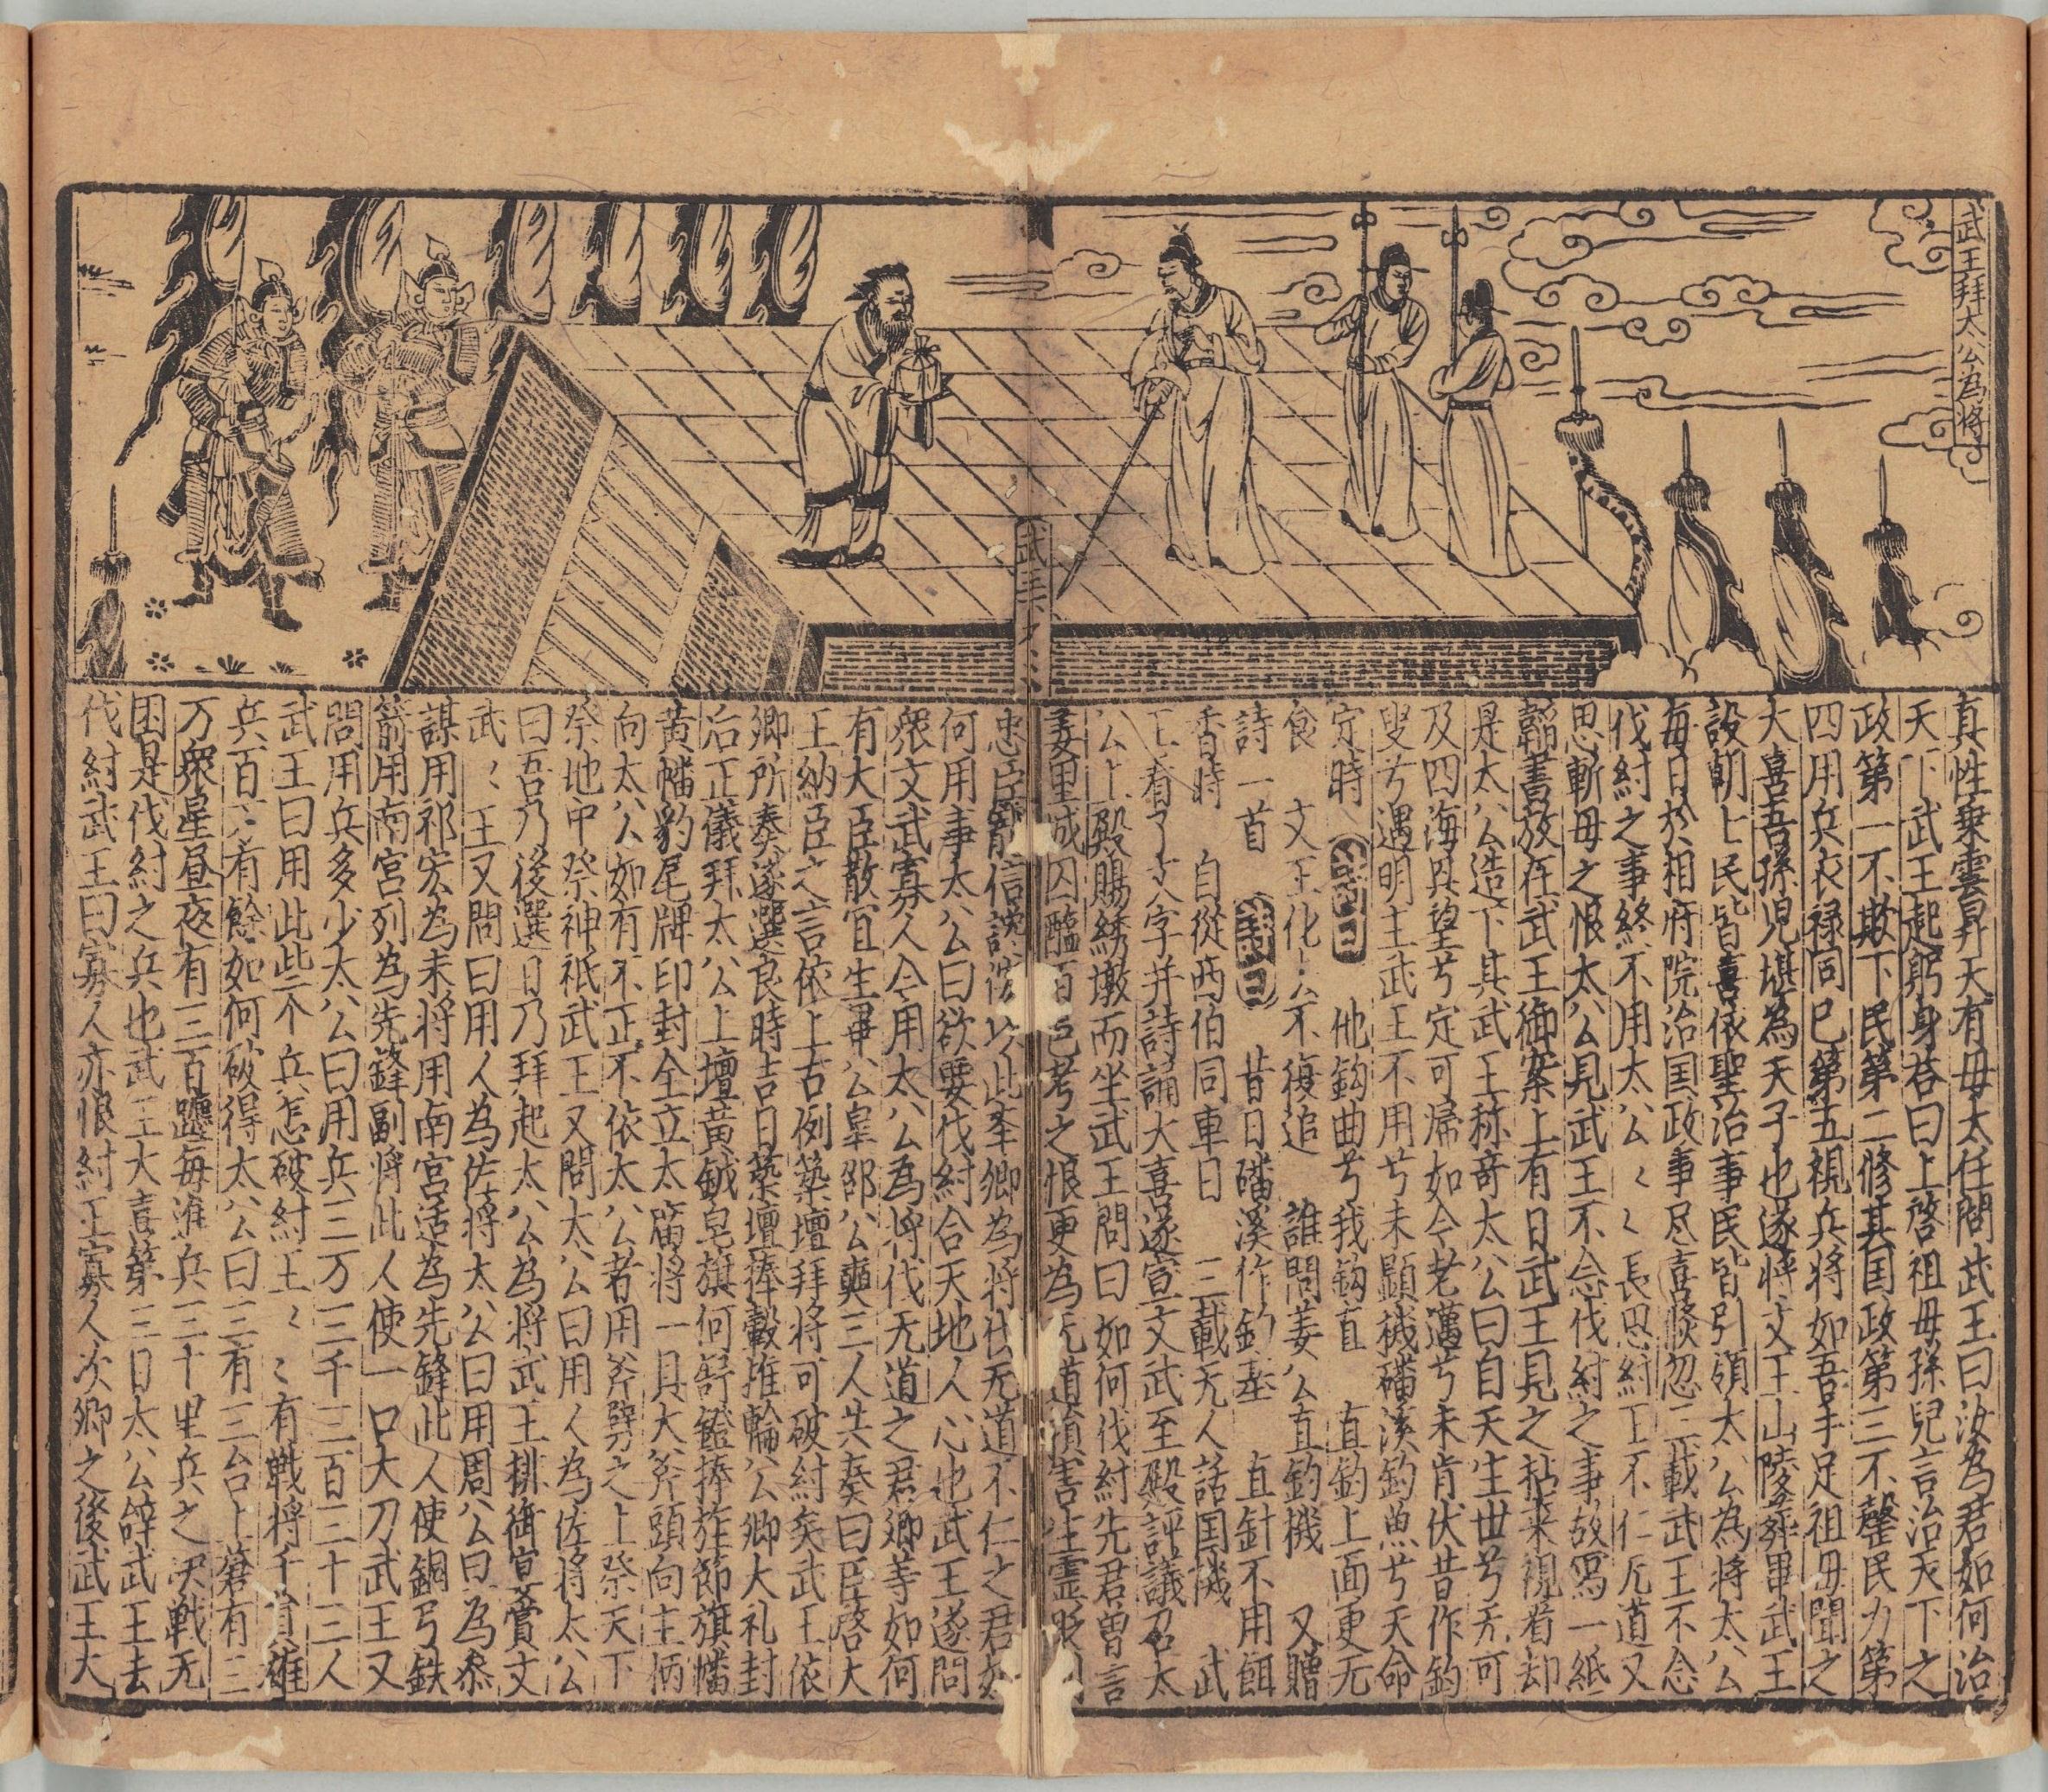 武王拜太公為将
真性乗雲昇天有毋太任問武王曰汝為君如何治
天下武王起躬身荅曰上啓祖毋孫兒言治天下之
政第一不欺下民第二修其国政第三不罄民力第
四用兵衣禄同巳第五視兵将如吾手足祖毋聞之
大喜吾孫児堪為天子也遂将文王山陵葬畢武王
設朝上民皆喜依聖治事民皆引領太公為将太公
毎日於相府院治国政事尽喜倐忽三載武王不念
伐紂之事終不用太公〻〻長思紂王不仁无道又
思斬毋之恨太公見武王不念伐紂之事故寫一紙
韜書放在武王御案上有日武王見之拈来視看却
是太公造下其武王称竒太公曰自天生世兮无可
及四海具望兮定可帰如今老邁兮未肯伏昔作釣
叟兮遇明主武王不用兮未顕機磻溪釣魚兮天命
定時 詩曰 他鈎曲兮我鈎直 直釣上面更无
食 文王化〻不復追 誰問姜公直釣機 又贈
詩一首 詩曰 昔日磻溪作釣基 直針不用餌
香時 自從西伯同車日 三載无人話国機 武
王看了文字并詩誦大喜遂宣文武至殿評議召太
公上殿賜綉墩而坐武王問曰如何伐紂先君曽言
姜里城囚醢百邑考之恨更為无道損害生霊貶
武王
忠臣寵信讒以此奉卿為将伐无道不仁之君
何用事太公曰欲要伐紂合天地人心也武王遂問
衆文武寡人今用太公為将伐无道之君卿等如何
有大臣散宜生畢公皐邵公奭三人共奏曰臣啓大
王納臣之言依上古例築壇拜将可破紂矣武王依
卿所奏遂選良時吉日築壇捧轂推輪公卿大礼封
后正儀拜太公上壇黄鉞皂旗何舒鐙捧旌節旗幡
黄幡豹尾牌印封全立太庙将一具大斧頭向主柄
向太公如有不正不依太公者用斧劈之上祭天下
祭地中祭神祇武王又問太公曰用人為佐将太公
曰吾乃後選日乃拜起太公為将武王排御宣賞文
武〻王又問曰用人為佐将太公曰用周公曰為叅
謀用祁宏為耒将用南宫适為先鋒此人使銅弓鉄
箭用南宫列為先鋒副将此人使一口大刀武王又
問用兵多少太公曰用兵三万三千三百三十三人
武王曰用此些个兵怎破紂王〻〻有戦将千員雄
兵百万有餘如何破得太公曰三有三台上窘有三
万衆星昼夜有三百躔毎准兵三十里兵之决戦无
困是伐紂之兵也武王大喜第三日太公辞武王去
伐紂武王曰寡人亦恨紂王寡人次卿之後武王大